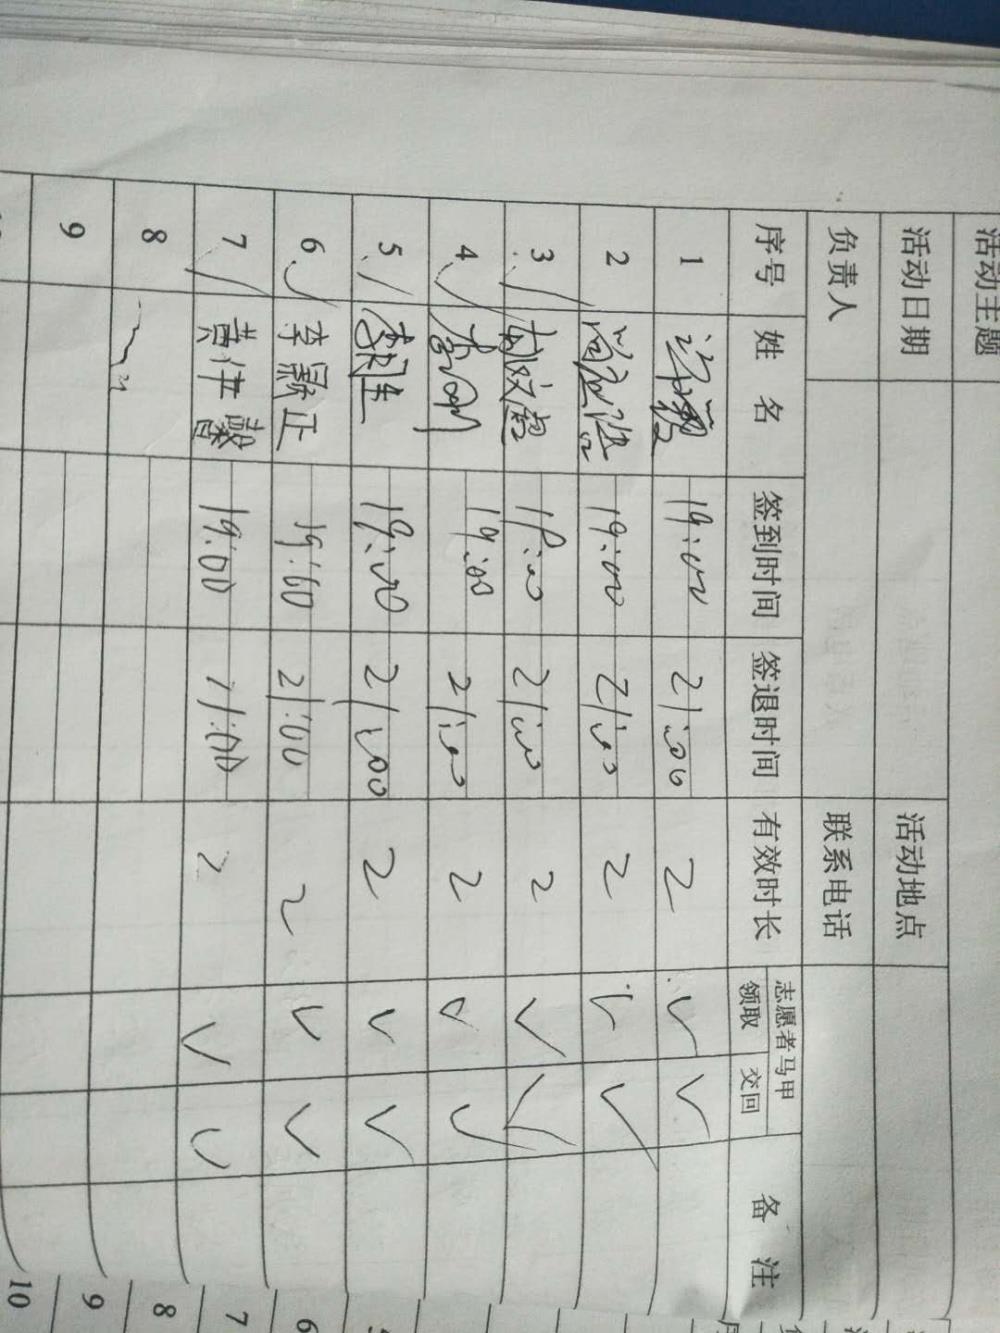 活动主题
活动日期 活动地点
负责人 联系电话
序号 姓 名 签到时间 签退时间 有效时长 志愿者马甲 备 注
领取 交回
1 19:00 21:00 2 ✓ ✓
2 19:00 21:00 2 ✓ ✓
3 19:00 21:00 2 ✓ ✓
4 19:00 21:00 2 ✓ ✓
5 19:00 21:00 2 ✓ ✓
6 李颢正 19:00 21:00 2 ✓ ✓
7 黄伊馨 19:00 21:00 2 ✓ ✓
8
9
6
7
8
9
10